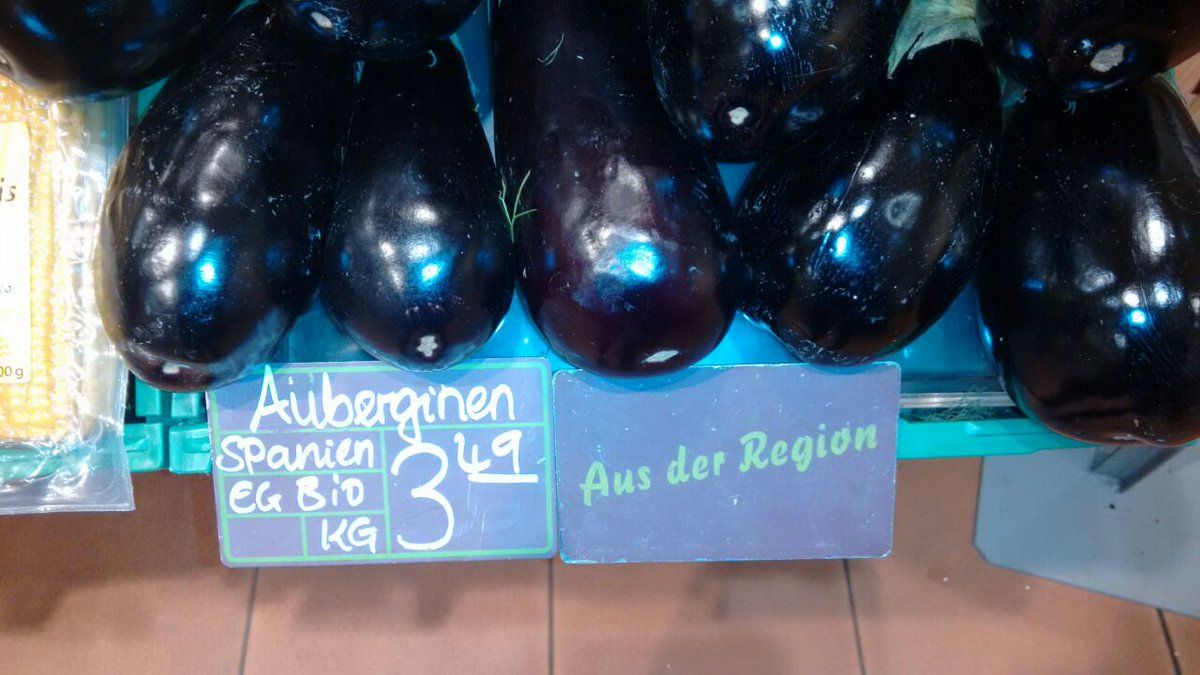 is
00 g
Auberginen
Spanien
EG Bio
KG
3 49
Aus der Region